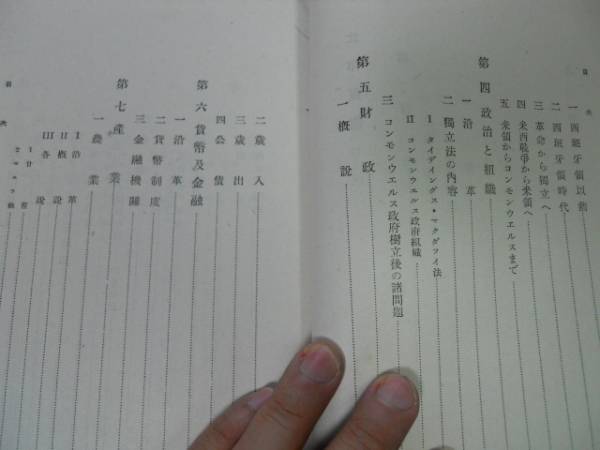 目次
一 西班牙領以前
二 西班牙領時代
三 革命から獨立へ
四 米西戰爭から米領へ
五 米領からコンモンウエルスまで
第四 政治と組織
一 沿革
二 獨立法の内容
I タイデイングス・マクダフイ法
II コンモンウエルス政府組織
三 コンモンウエルス政府樹立後の諸問題
第五 財政
一 概說
二 歲入
三 歲出
四 公債
第六 貨幣及金融
一 沿革
二 貨幣制度
三 金融機關
第七 產業
一 農業
I 沿革
II 概說
III 各說
目次